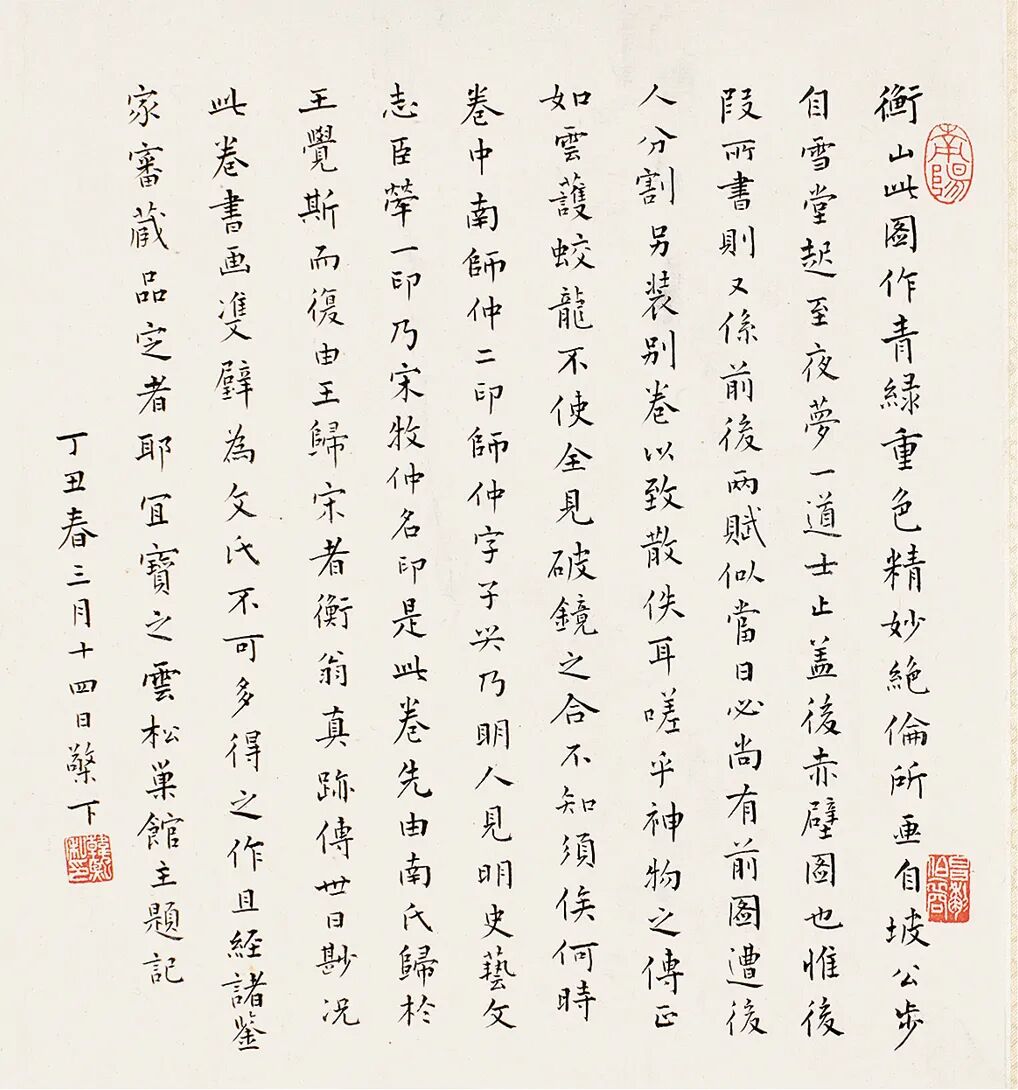 衡山此圖作青緑重色精妙絶倫所畫自坡公步
自雪堂起至夜夢一道士止盖後赤壁圖也惟後
段所書則又係前後兩賦似當日必尚有前圖遭後
人分割另装别卷以致散佚耳嗟乎神物之傳正
如雲護蛟龍不使全見破鏡之合不知須俟何時
卷中南師仲二印師仲字子兴乃明人見明史藝文
志臣犖一印乃宋牧仲名印是此卷先由南氏歸於
王覺斯而復由王歸宋者衡翁真跡傳世日尠况
此卷書画雙璧為文氏不可多得之作且経諸鑒
家審蔵品定者耶宜寶之雲松巢館主題記
丁丑春三月十四日檠下
南陽